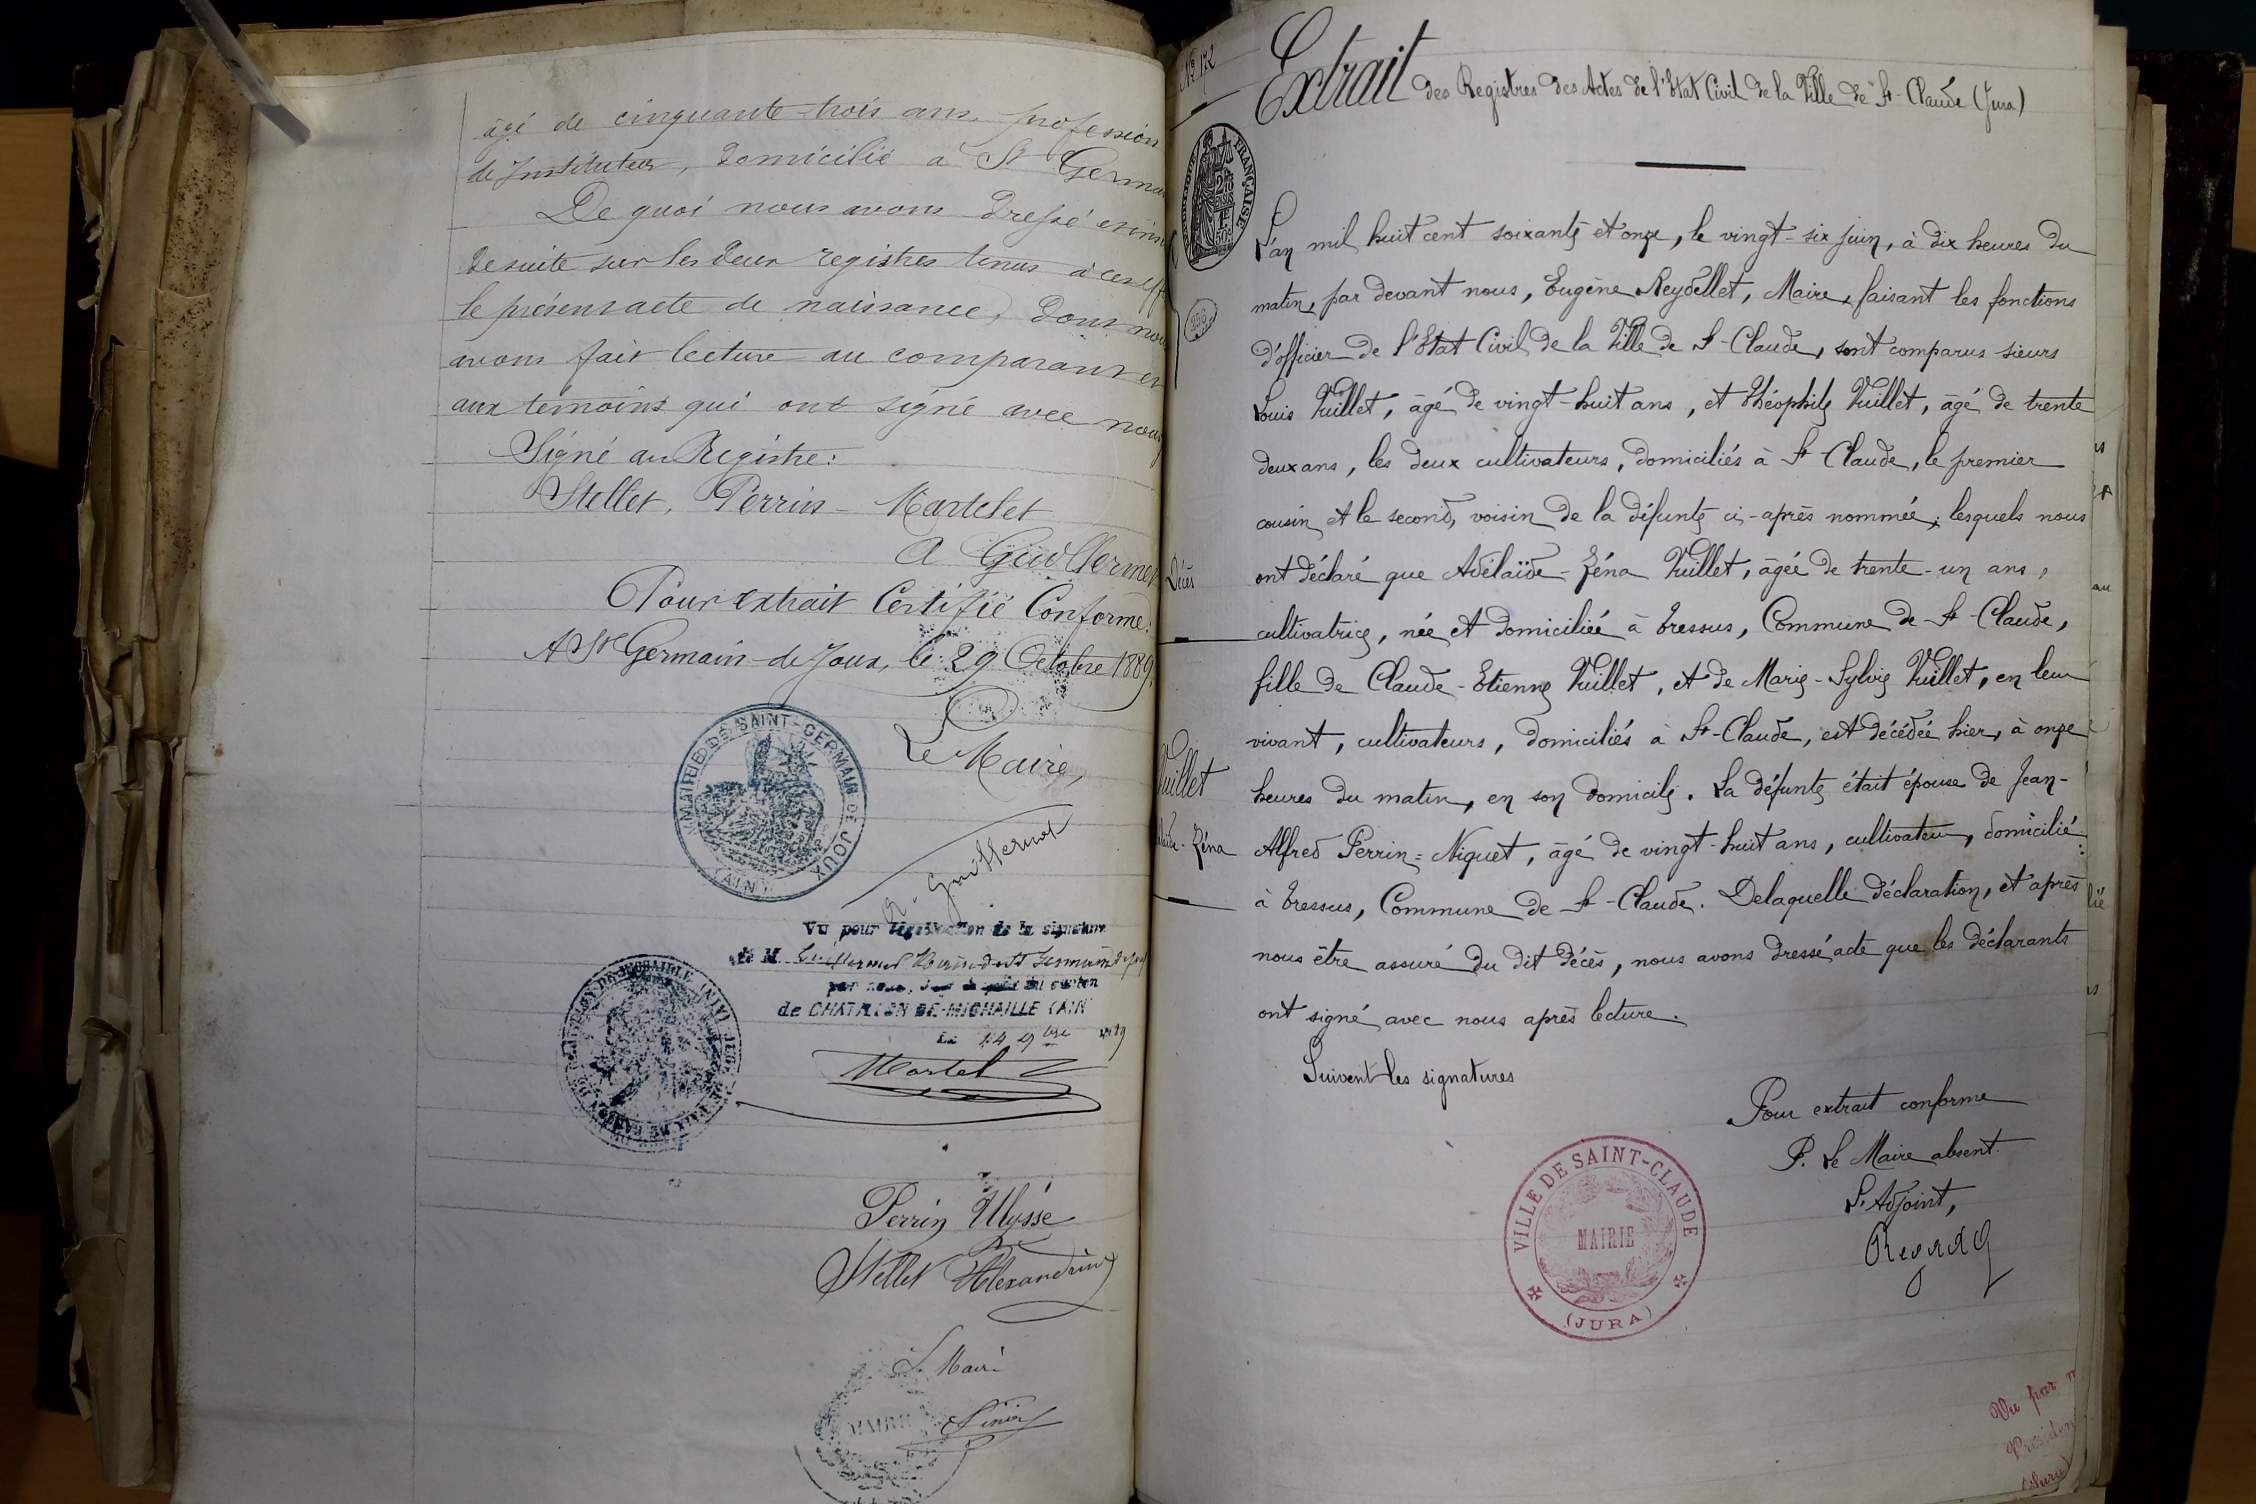 âgé de cinquante-trois ans, profession
de Instituteur, domicilié à St Germai
De quoi nous avons dressé et ins
de suite sur les deux registres tenus à cet eff
le présent acte de naissance, dont nous
avons fait lecture au comparant et
aux témoins qui ont signé avec nous
Signé au Registre:
Stellet, Perrin - Martelet
A Guillermet
Pour extrait Certifié Conforme:
A St Germain-de-Joux, le 29 Octobre 1889.
Le Maire,
MAIRIE DE SAINT-GERMAIN DE JOUX
(AIN)
A. Guillermet
Vu pour législation de la signature
de M. Guillermet
par nous, Juge de paix du canton
de CHATILLON-DE-MICHAILLE (AIN)
Le 14 9bre 1889
Martel
Perrin Ulysse
Stellet Alexandrine
Le Maire
MAIRIE
No 172
Extrait des Registres des Actes de l'Etat Civil de la Ville de St-Claude (Jura)
FRANÇAISE
L'an mil huit cent soixante et onze, le vingt-six juin, à dix heures du
matin, par devant nous, Eugène Reydellet, Maire, faisant les fonctions
d'officier de l'Etat Civil de la Ville de St-Claude, sont comparus sieurs
Louis Vuillet, âgé de vingt-huit ans, et Théophile Vuillet, âgé de trente
deux ans, les deux cultivateurs, domiciliés à St-Claude, le premier
cousin et le second, voisin de la défunte ci-après nommée, lesquels nous
Décès
ont déclaré que Adélaïde-Zéna Vuillet, âgée de trente-un ans,
cultivatrice, née et domiciliée à Cressus, Commune de St-Claude,
fille de Claude-Etienne Vuillet, et de Marie-Sylvie Vuillet, en leur
vivant, cultivateurs, domiciliés à St-Claude, est décédée hier, à onze
Vuillet
heures du matin, en son domicile. La défunte était épouse de Jean-
Zéna
Alfred Perrin=Niquet, âgé de vingt-huit ans, cultivateur, domicilié
à Cressus, Commune de St-Claude. Delaquelle déclaration, et après
nous être assuré du dit décès, nous avons dressé acte que les déclarants
ont signé avec nous après lecture.
Suivent les signatures
Pour extrait conforme
P. Le Maire absent.
L'Adjoint,
VILLE DE SAINT-CLAUDE
MAIRIE
(JURA)
Vu par n
Présiden
(Jura)